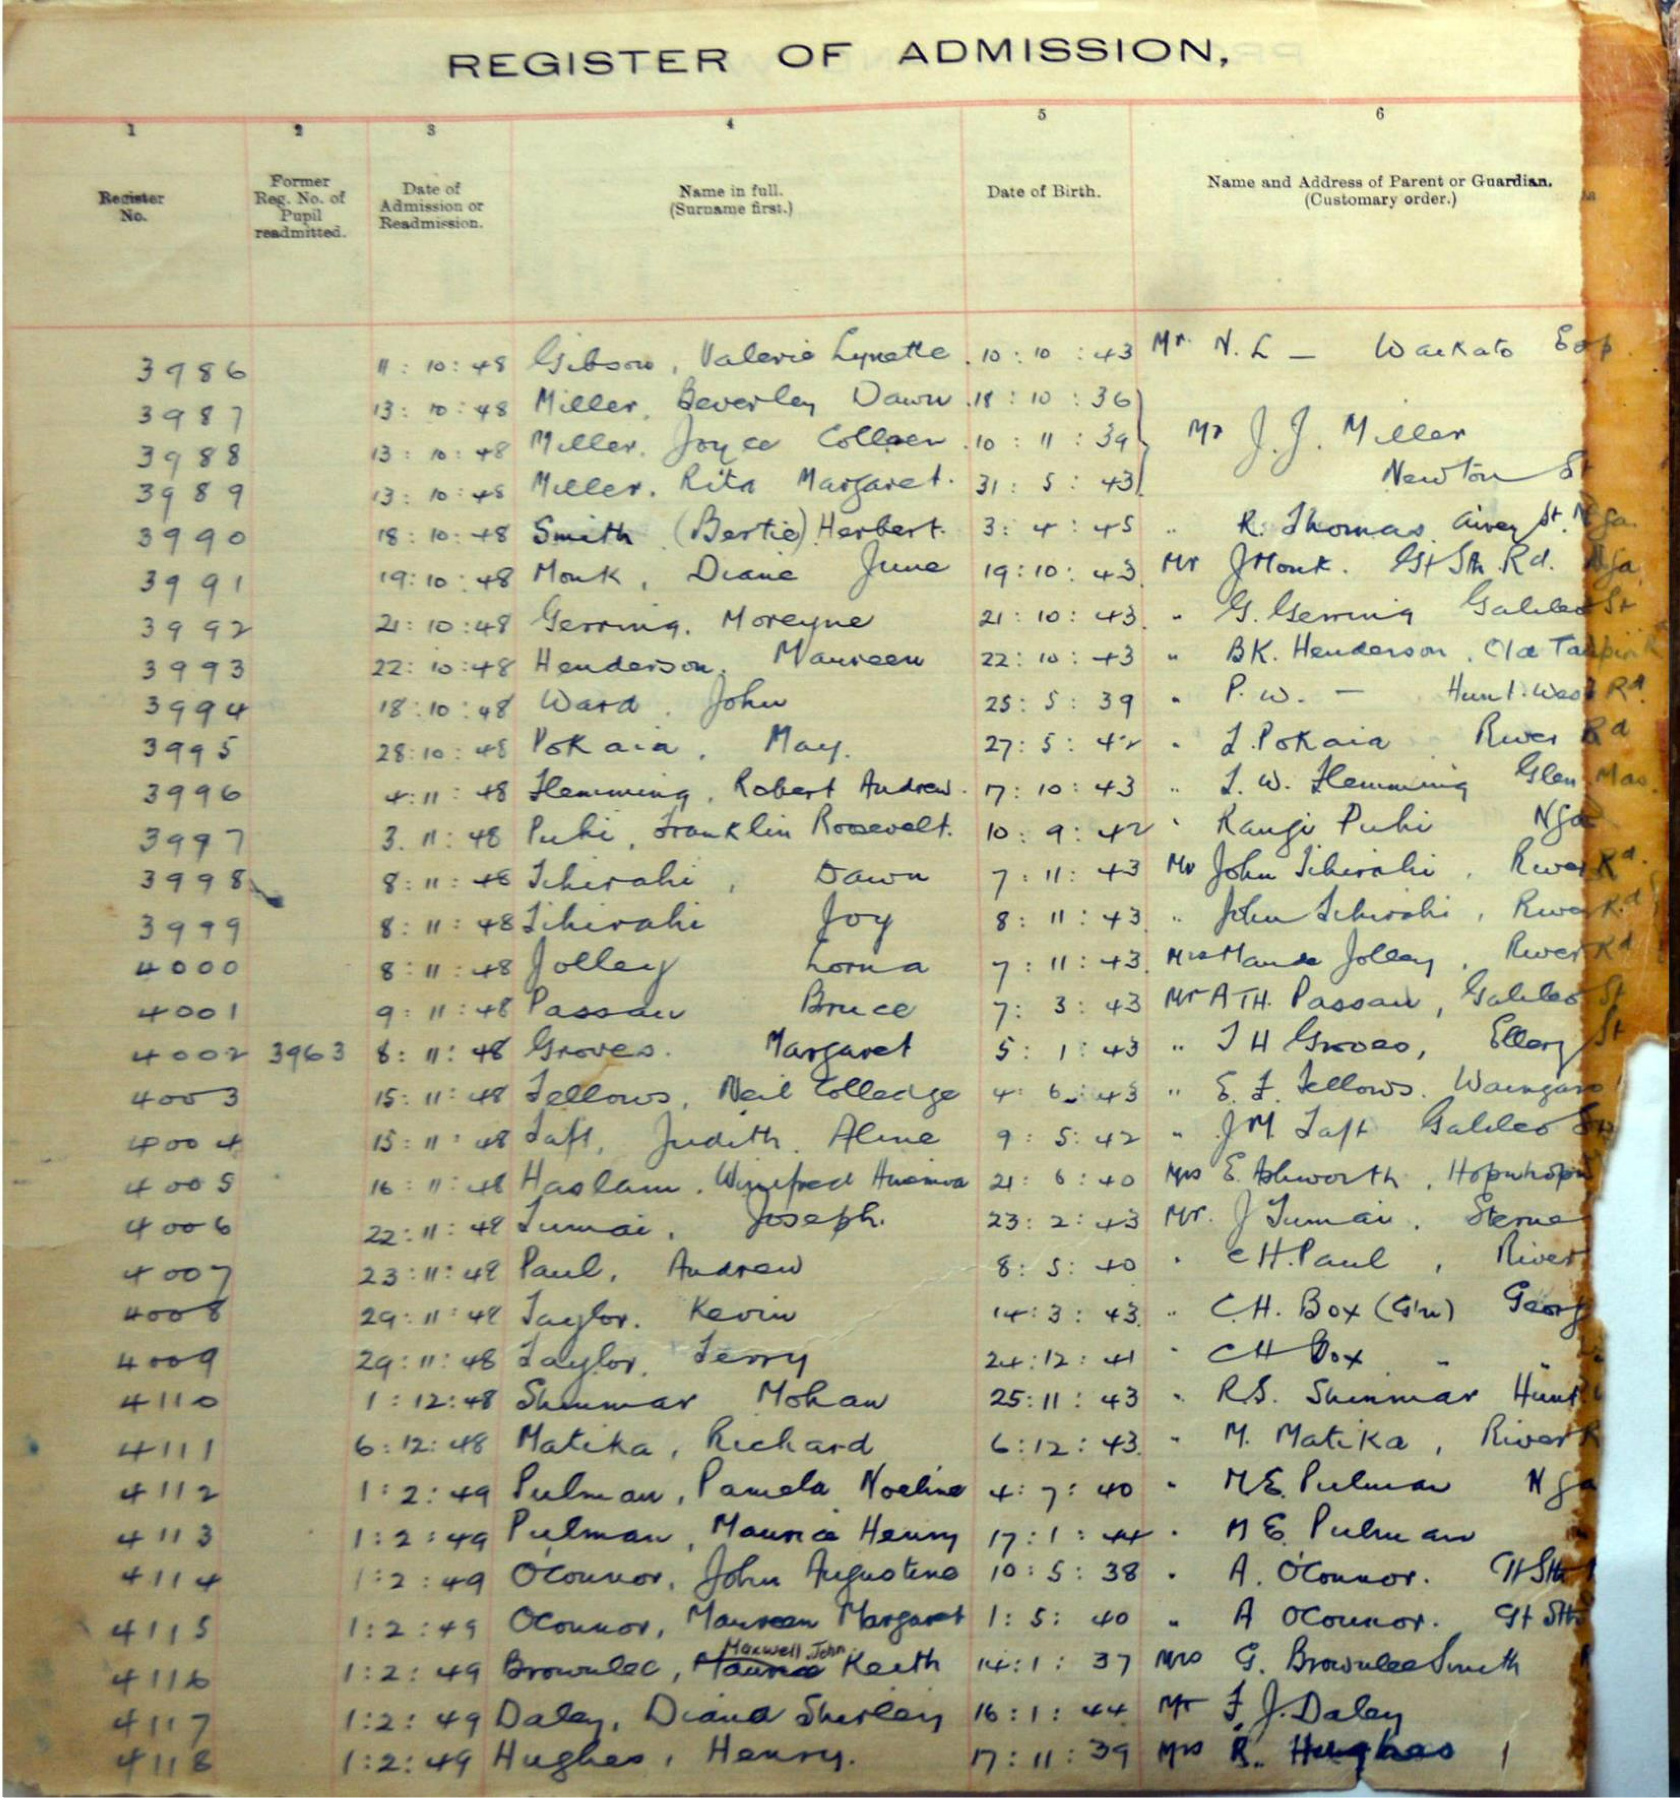 REGISTER OF ADMISSION,
1 2 3 4 5 6
Register No. Former Reg. No. of Pupil readmitted. Date of Admission or Readmission. Name in full. (Surname first.) Date of Birth. Name and Address of Parent or Guardian. (Customary order.)
3986 11:10:48 Gibson, Valerie Lynette 10:10:43 Mr N. L — Waikato Esp
3987 13:10:48 Miller, Beverley Dawn 18:10:36
3988 13:10:48 Miller, Joyce Colleen 10:11:39 Mr J. J. Miller
3989 13:10:48 Miller, Rita Margaret 31:5:43 Newton St
3990 18:10:48 Smith (Bertie) Herbert 3:4:45 " R. Thomas St. Nga.
3991 19:10:48 Monk, Diane June 19:10:43 Mr J Monk. Gt Sth Rd. Nga
3992 21:10:48 Gerring, Moreyne 21:10:43 " G. Gerring Galileo St
3993 22:10:48 Henderson, Maureen 22:10:43 " B.K. Henderson, Old Taupiri R
3994 18:10:48 Ward, John 25:5:39 " P. W. — Hunt. West Rd.
3995 28:10:48 Pokaia, May. 27:5:42 " T. Pokaia River Rd
3996 4:11:48 Flemming, Robert Andrew 7:10:43 " T. W. Flemming Glen Mas.
3997 3.11:48 Puhi, Franklin Roosevelt. 10:9:42 " Rangi Puhi Nga
3998 8:11:48 Tihirahi, Dawn 7:11:43 Mr John Tihirahi, River Rd.
3999 8:11:48 Tihirahi Joy 8:11:43 " John Tihirahi, River Rd
4000 8:11:48 Jolley Lorna 7:11:43 Mrs Maude Jolley, River Rd
4001 9:11:48 Passau Bruce 7:3:43 Mr A T.H. Passau, Galileo St
4002 3963 8:11:48 Groves. Margaret 5:1:43 " T H Groves, Ellery St
4003 15:11:48 Fellows, Neil Colledge 4:6:43 " E. F. Fellows. Waingaro
4004 15:11:48 Taft, Judith Aline 9:5:42 " J M Taft Galileo St
4005 16:11:48 Haslam, Winifred 21:6:40 Mrs E. Ashworth, Hopuhopu
4006 22:11:48 Tumai, Joseph. 23:2:43 Mr. J Tumai, Sterne
4007 23:11:48 Paul, Andrew 8:5:40 " C H. Paul, River
4008 29:11:48 Taylor. Kevin 14:3:43 " C.H. Box (G'n) Georg
4009 29:11:48 Taylor. Terry 24:12:41 " C H Box " "
4110 1:12:48 Shinmar Mohan 25:11:43 " R.S. Shinmar Hunt
4111 6:12:48 Matika, Richard 6:12:43 " M. Matika, River R
4112 1:2:49 Pulman, Pamela Noeline 4:7:40 " M.E. Pulman Nga
4113 1:2:49 Pulman, Maurice Henry 17:1:44 " M E. Pulman
4114 1:2:49 O'Connor, John Augustine 10:5:38 " A. O'Connor. Gt Sth
4115 1:2:49 O'Connor, Maureen Margaret 1:5:40 " A O'Connor. Gt Sth
Maxwell John
4116 1:2:49 Brownlee, Maurice Keith 14:1:37 Mrs G. Brownlee Smith
4117 1:2:49 Daley, Diana Shirley 16:1:44 Mr F. J. Daley
4118 1:2:49 Hughes, Henry. 17:11:39 Mrs R. Hughes